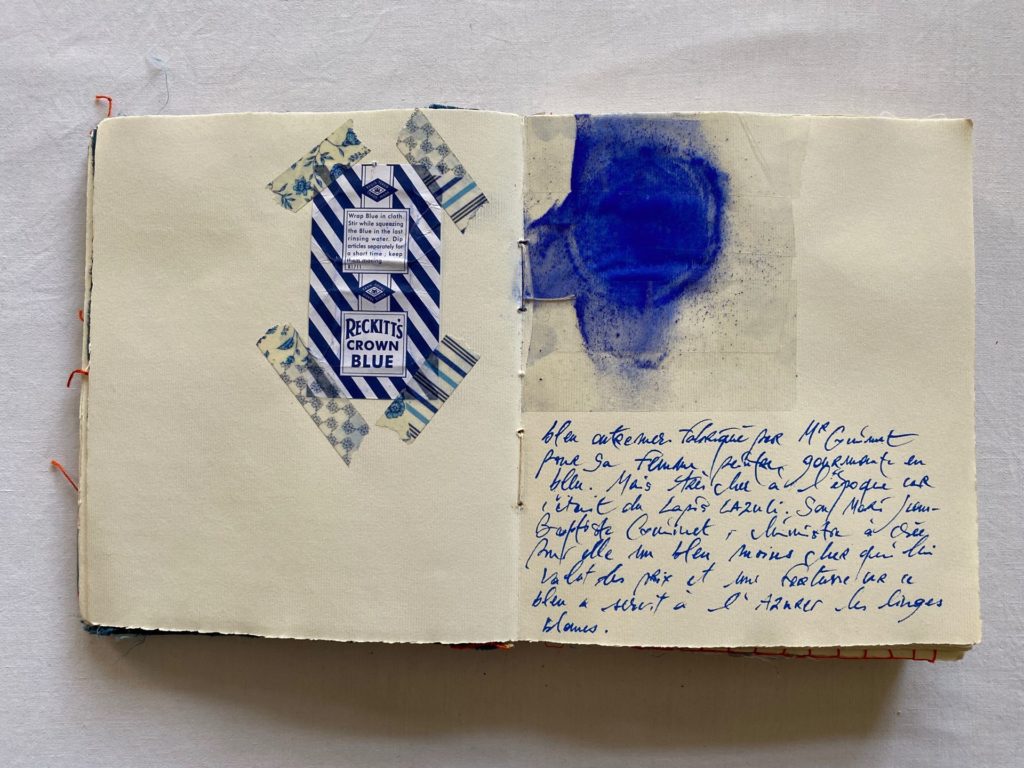 Wrap Blue in cloth.
Stir while squeezing
the Blue in the last
rinsing water. Dip
articles separately for
a short time ; keep
them moving
RECKITT'S
CROWN
BLUE
bleu outremer fabriqué par Mr Guimet
pour sa femme peintre, gourmande en
bleu. Mais très cher à l'époque car
c'était du Lapis LAZULI. Son Mari Jean-
Baptiste Guimet, chimiste à crée
pour elle un bleu moins cher qui lui
valut des prix et une car ce
bleu a servit à l'AZURER les linges
blancs.